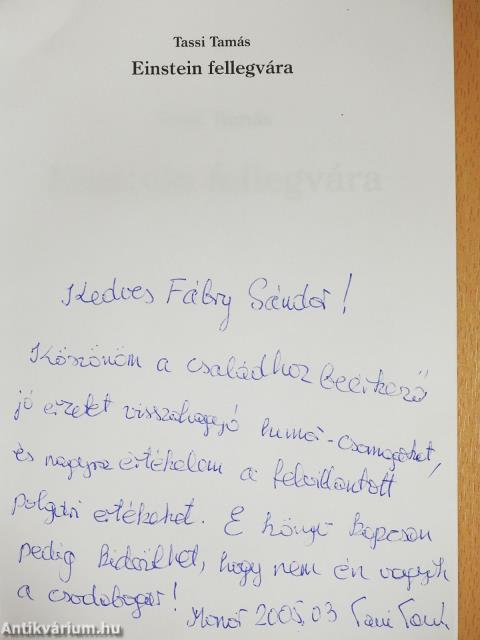 Tassi Tamás
Einstein fellegvára
Kedves Fábry Sándor!
Köszönöm a családhoz beérkező
jó érzést visszahagyó humor-csomagokat,
és nagyra értékelem a felvillantott
polgári értékeket. E könyv kapcsán
pedig kiderülhet, hogy nem én vagyok
a csodabogár!
Monor 2005.03 Tassi Tamás
Antikvárium.hu